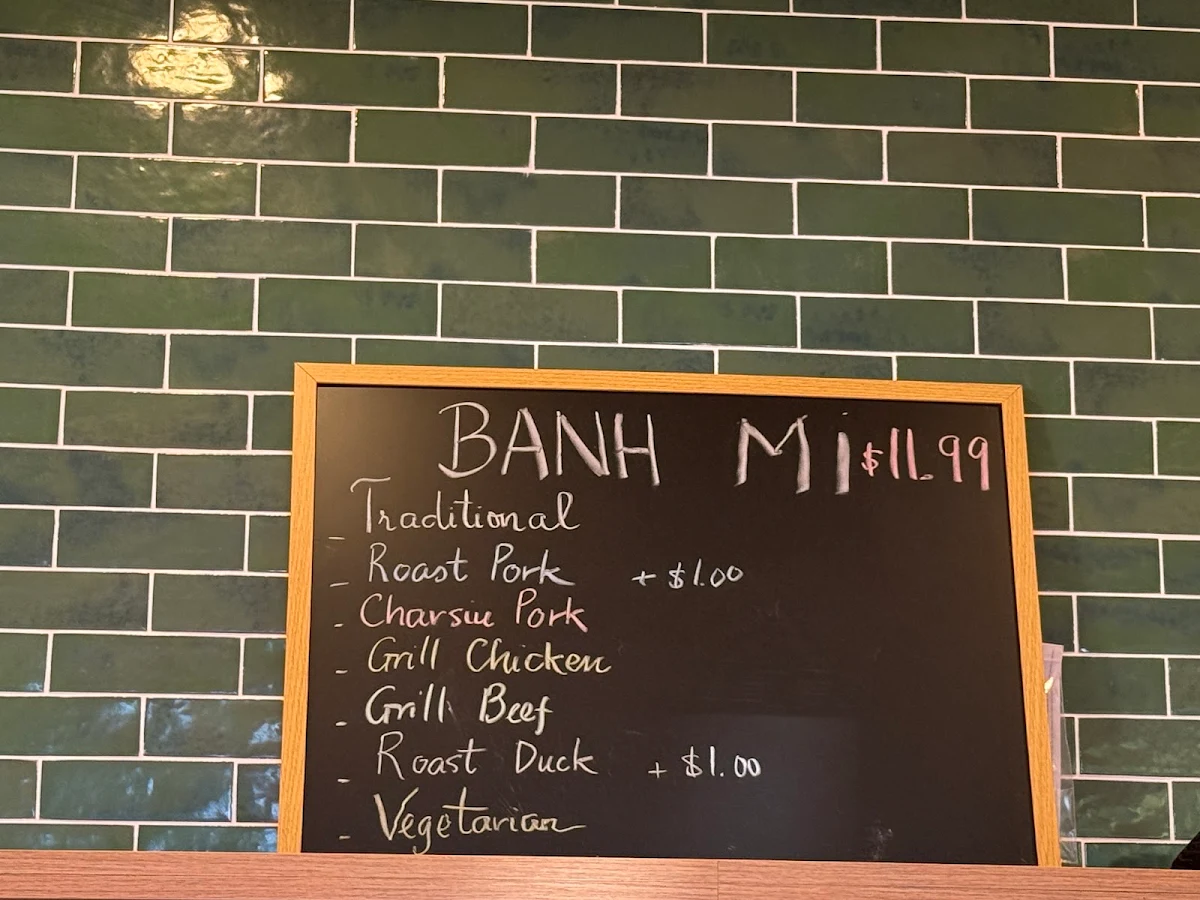 BANH Mi $11.99
- Traditional
- Roast Pork + $1.00
- Charsiu Pork
- Grill Chicken
- Grill Beef
- Roast Duck + $1.00
- Vegetarian